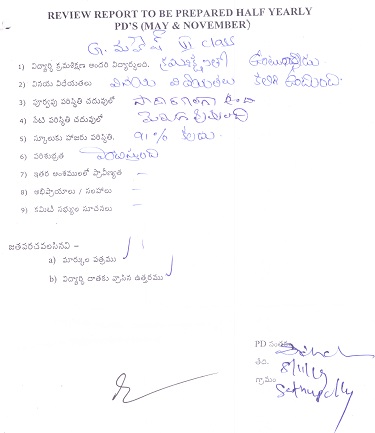 REVIEW REPORT TO BE PREPARED HALF YEARLY
PD'S (MAY & NOVEMBER)
G. మహేష్ VI class
1) విద్యార్థి క్రమశిక్షణ అందరి విద్యార్థులది. క్రమశిక్షణతో ఉంటున్నాడు
2) వినయ విధేయతలు వినయ విధేయతలు కలిగి ఉండింది.
3) పూర్వపు పరిస్థితి చదువులో
4) నేటి పరిస్థితి చదువులో
5) స్కూలుకు హాజరు పరిస్థితి. 91% కలదు.
6) పరిశుభ్రత పాటిస్తుంది
7) ఇతర అంశములలో ప్రావీణ్యత –
8) అభిప్రాయాలు / సలహాలు –
9) కమిటీ సభ్యుల సూచనలు –
జతపరచవలసినవి –
a) మార్కుల పత్రము ✓
b) విద్యార్థి దాతకు వ్రాసిన ఉత్తరము ✓
PD సంతకం
తేది. 8/11/19
గ్రామం Sathupally